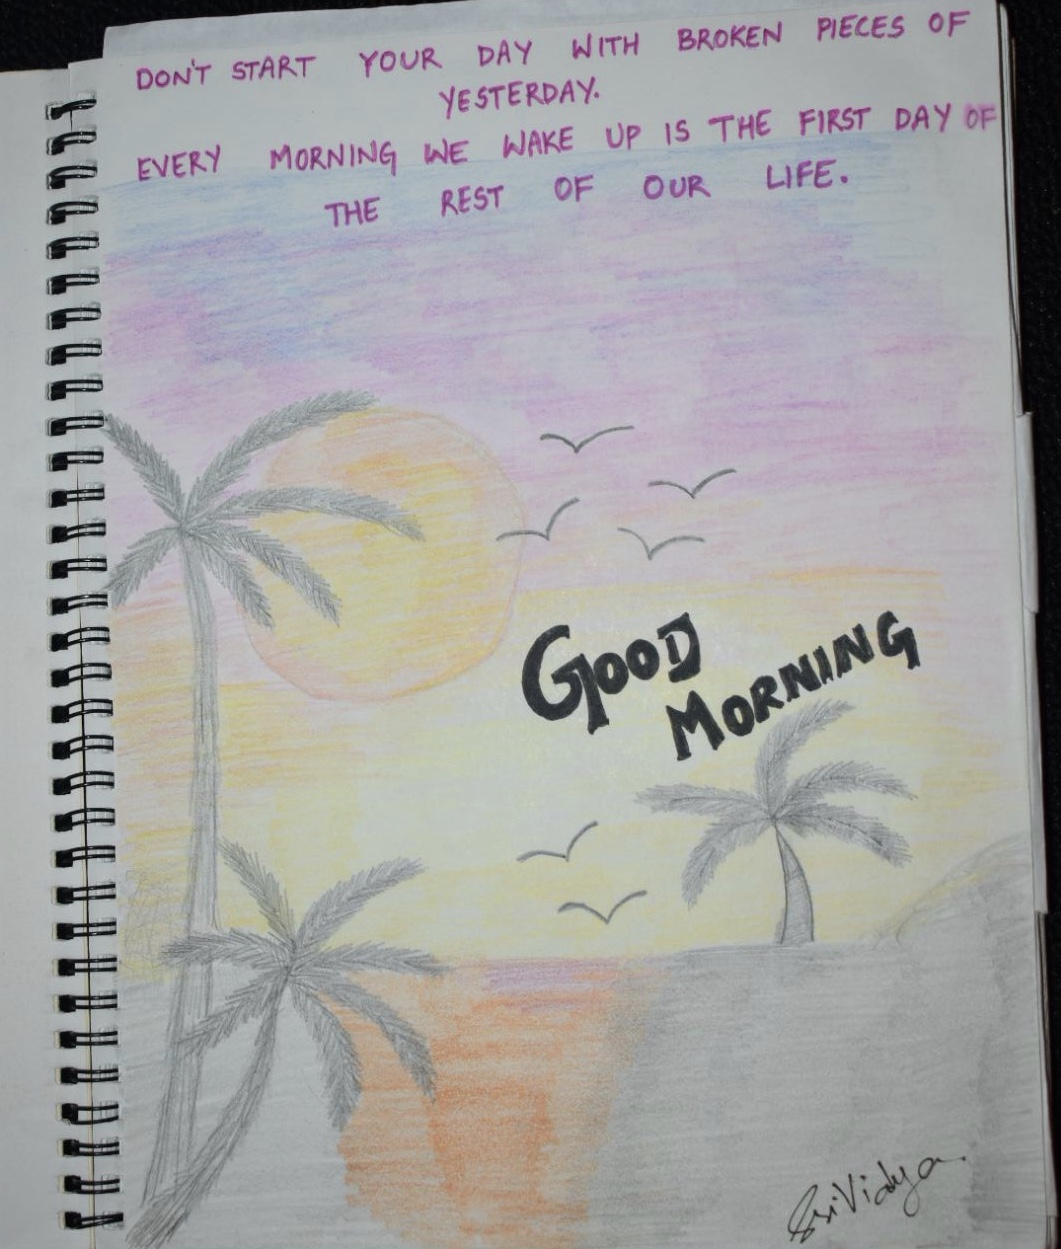 DON'T START YOUR DAY WITH BROKEN PIECES OF
YESTERDAY.
EVERY MORNING WE WAKE UP IS THE FIRST DAY OF
THE REST OF OUR LIFE.
GOOD
MORNING
SriVidya.